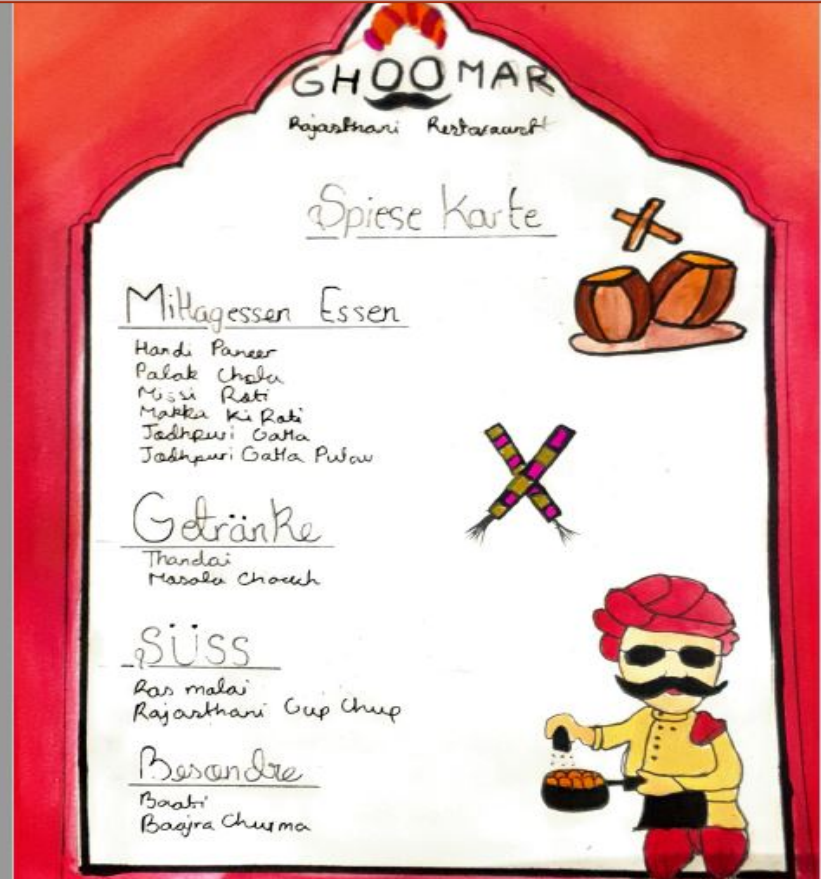 GHOOMAR
Rajasthani Restaraunt
Spiese Karte
Mittagessen Essen
Handi Paneer
Palak Chola
Missi Roti
Makka Ki Roti
Jodhpuri Gatta
Jodhpuri Gatta Pulav
Getränke
Thandai
Masala Chaach
SÜSS
Ras malai
Rajasthani Gup Chup
Besondre
Baati
Baajra Churma